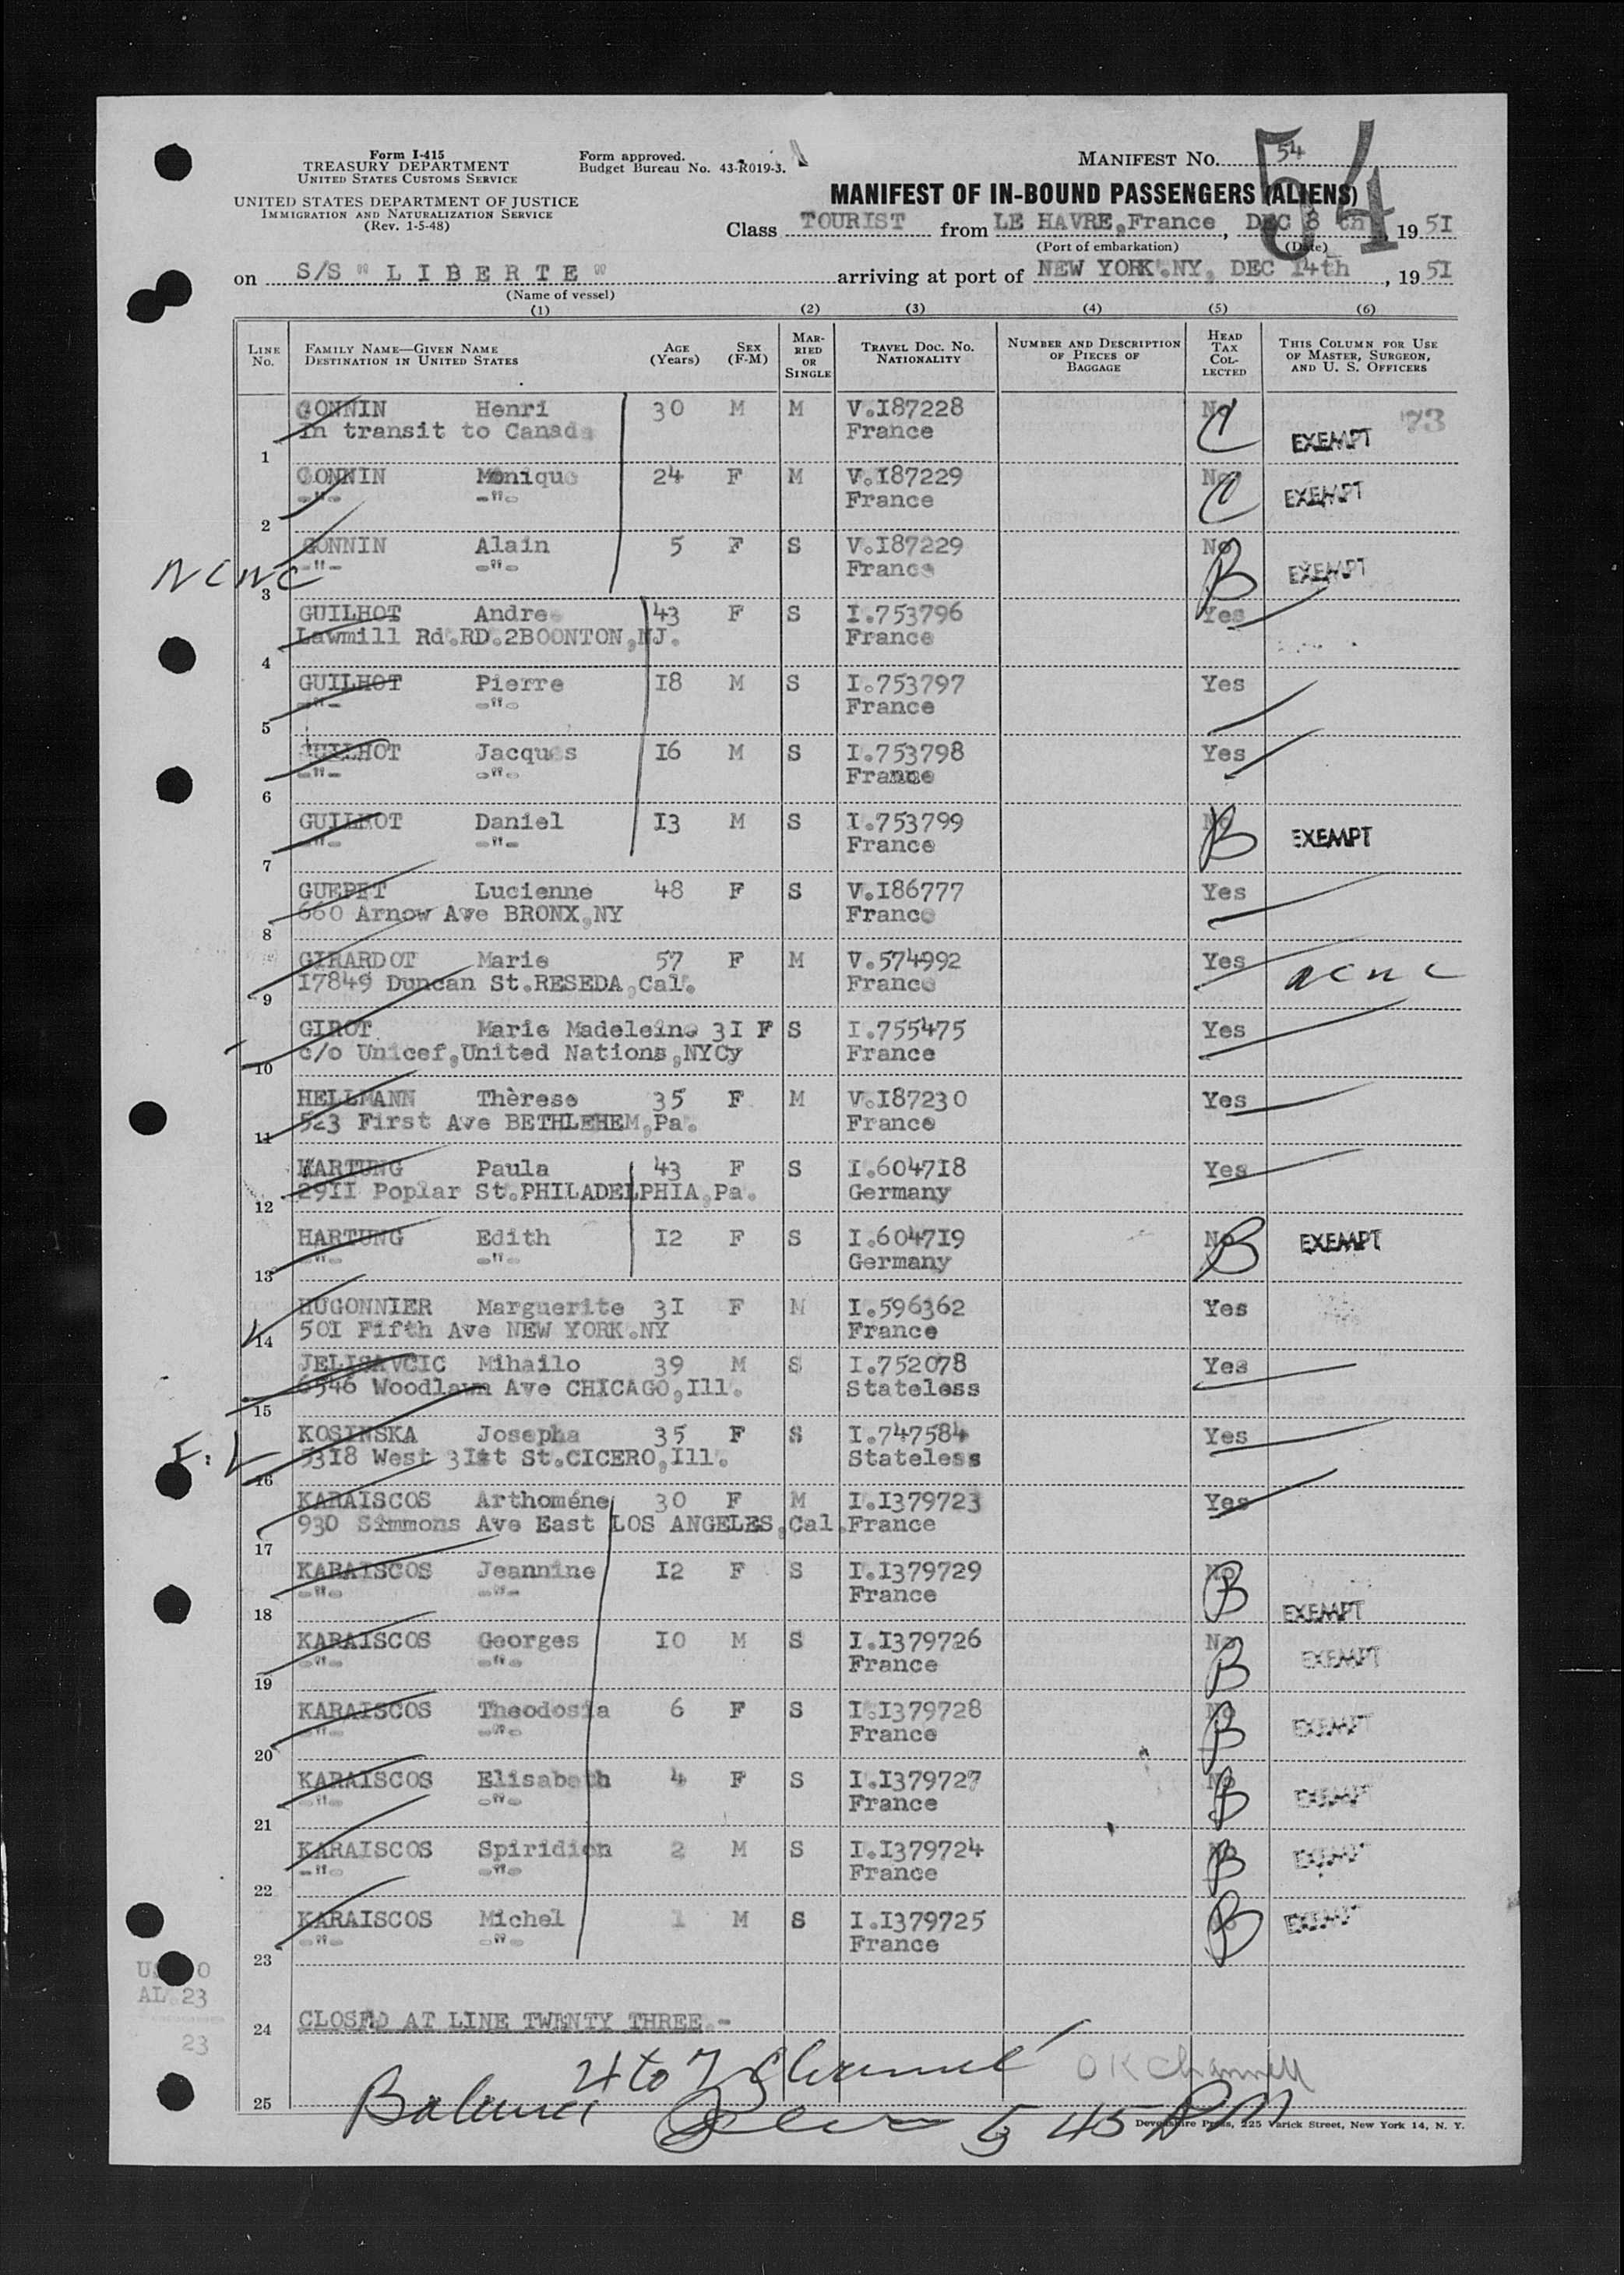 Form I-415
TREASURY DEPARTMENT
UNITED STATES CUSTOMS SERVICE
UNITED STATES DEPARTMENT OF JUSTICE
IMMIGRATION AND NATURALIZATION SERVICE
(Rev. 1-5-48)
Form approved.
Budget Bureau No. 43-R019-3.
MANIFEST No. 54
54
MANIFEST OF IN-BOUND PASSENGERS (ALIENS)
Class TOURIST from LE HAVRE,France, DEC 8 th, 1951
(Port of embarkation) (Date)
on S/S " L I B E R T E " arriving at port of NEW YORK.NY, DEC 14th, 1951
(Name of vessel)
(1) (2) (3) (4) (5) (6)
LINE No. FAMILY NAME—GIVEN NAME DESTINATION IN UNITED STATES AGE (Years) SEX (F-M) MARRIED OR SINGLE TRAVEL DOC. NO. NATIONALITY NUMBER AND DESCRIPTION OF PIECES OF BAGGAGE HEAD TAX COLLECTED THIS COLUMN FOR USE OF MASTER, SURGEON, AND U. S. OFFICERS
GONNIN Henri 30 M M V.I87228 No 73
In transit to Canada France C EXEMPT
1
GONNIN Monique 24 F M V.I87229 No
-"- -"- France C EXEMPT
2
GONNIN Alain 5 F S V.I87229 No
NCNC -"- -"- France B EXEMPT
3
GUILHOT Andre 43 F S I.753796 Yes
Lawmill Rd.RD.2BOONTON,NJ. France
4
GUILHOT Pierre I8 M S I.753797 Yes
-"- -"- France
5
GUILHOT Jacques I6 M S I.753798 Yes
-"- -"- Franne
6
GUILHOT Daniel I3 M S I.753799 No
-"- -"- France B EXEMPT
7
GUEPET Lucienne 48 F S V.I86777 Yes
660 Arnow Ave BRONX,NY France
8
GIRARDOT Marie 57 F M V.574992 Yes
I7849 Duncan St.RESEDA,Cal. France ncnc
9
GIROT Marie Madeleine 3I F S I.755475 Yes
c/o Unicef,United Nations,NYCy France
10
HELLMANN Thèrese 35 F M V.I87230 Yes
523 First Ave BETHLEHEM,Pa. France
11
HARTUNG Paula 43 F S I.604718 Yes
29II Poplar St.PHILADELPHIA,Pa. Germany
12
HARTUNG Edith I2 F S I.604719 No
-"- -"- Germany B EXEMPT
13
HUGONNIER Marguerite 3I F M I.596362 Yes
50I Fifth Ave NEW YORK.NY France
14
JELISAVCIC Mihailo 39 M S I.752078 Yes
6546 Woodlawn Ave CHICAGO,Ill. Stateless
15
KOSINSKA Josepha 35 F S I.747584 Yes
5318 West 3Ist St.CICERO,Ill. Stateless
16
KARAISCOS Arthoméne 30 F M I.I379723 Yes
930 Simmons Ave East LOS ANGELES,Cal. France
17
KARAISCOS Jeannine I2 F S I.I379729 No
-"- -"- France B EXEMPT
18
KARAISCOS Georges I0 M S I.I379726 No
-"- -"- France B EXEMPT
19
KARAISCOS Theodosia 6 F S I.I379728 No
-"- -"- France B EXEMPT
20
KARAISCOS Elisabeth 4 F S I.I379727 No
-"- -"- France B EXEMPT
21
KARAISCOS Spiridion 2 M S I.I379724 No
-"- -"- France B EXEMPT
22
KARAISCOS Michel 1 M S I.I379725
-"- -"- France B EXEMPT
23
AL. 23
23
24 CLOSED AT LINE TWENTY THREE.-
4 to 7
OK
25
Balance 5 45 PM
Devonshire Press, 225 Varick Street, New York 14, N. Y.